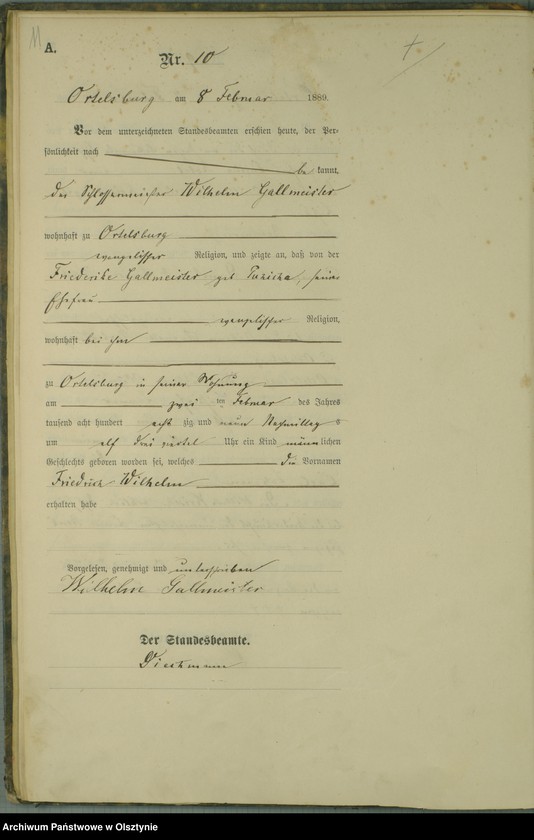 11
A.
Nr. 10
Ortelsburg am 8 Februar 1889.
Vor dem unterzeichneten Standesbeamten erschien heute, der Per-
sönlichkeit nach
be kannt,
der Schlossermeister Wilhelm Gallmeister
wohnhaft zu Ortelsburg
evangelischer Religion, und zeigte an, daß von der
Friederike Gallmeister geb. seiner
Ehefrau
evangelischer Religion,
wohnhaft bei ihm
zu Ortelsburg in seiner Wohnung
am zwei ten Februar des Jahres
tausend acht hundert acht zig und neun Nachmittags
um elf drei viertel Uhr ein Kind männlichen
Geschlechts geboren worden sei, welches die Vornamen
Friedrich Wilhelm
erhalten habe
Vorgelesen, genehmigt und unterschrieben
Wilhelm Gallmeister
Der Standesbeamte.
Archiwum Państwowe w Olsztynie